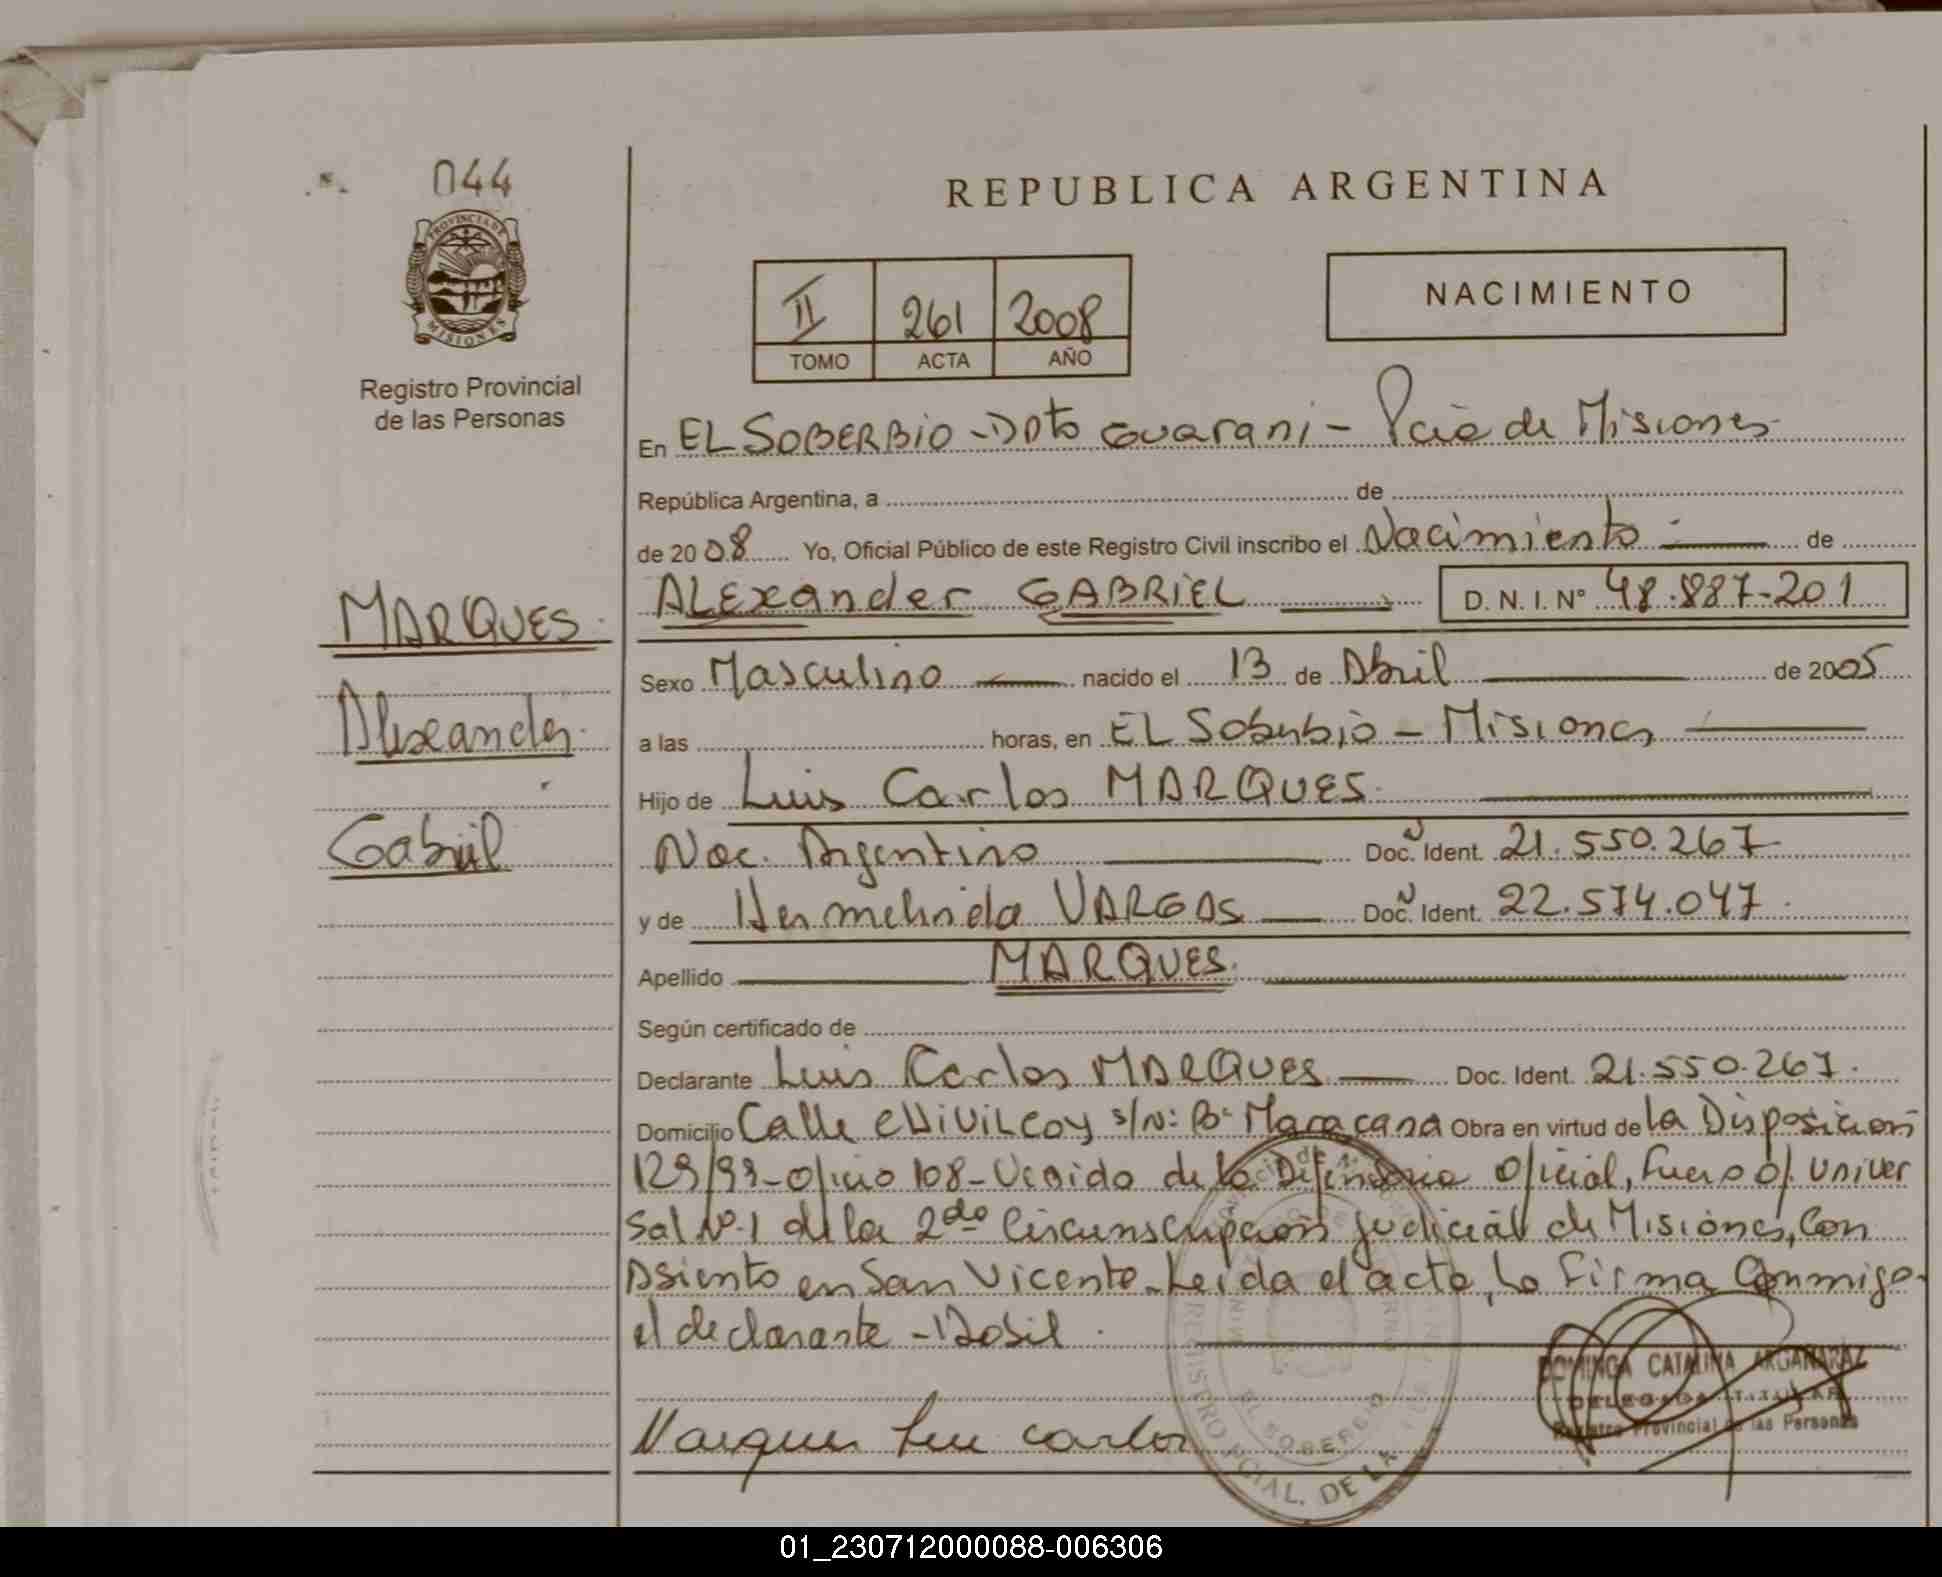 044
PROVINCIA DE
MISIONES
Registro Provincial
de las Personas
MARQUES.
Alexander
Gabriel
REPUBLICA ARGENTINA
II 261 2008
TOMO ACTA AÑO
NACIMIENTO
En EL SOBERBIO - Dpto Guarani - Pcia de Misiones
República Argentina, a de
de 2008 Yo, Oficial Público de este Registro Civil inscribo el Nacimiento de
ALExander GABRIEL D. N. I. N° 48.887-201
Sexo Masculino nacido el 13 de Abril de 2005
a las horas, en EL Soberbio - Misiones
Hijo de Luis Carlos MARQUES.
Nac. Argentino Doc. Ident. 21.550.267
y de Hermelinda VARGAS Doc. Ident. 22.574.047
Apellido MARQUES.
Según certificado de
Declarante Luis Carlos MARQUES Doc. Ident. 21.550.267.
Domicilio Calle CHIVILCOY s/N: B° Maracana Obra en virtud de la Disposicion
129/99-oficio 108-Venido de la Defensoria Oficial, Fuero of. Univer
sal N°1 de la 2da Circunscripcion judicial de Misiones, Con
Asiento en San Vicente. Leida el acta, la Firma Conmigo
el declarante
Marques Luis Carlos
DOMINGA CATALINA ARGAÑARAZ
DELEGADA TITULAR
Registro Provincial de las Personas
EL SOBERBIO
REGISTRO PCIAL. DE LA
01_230712000088-006306